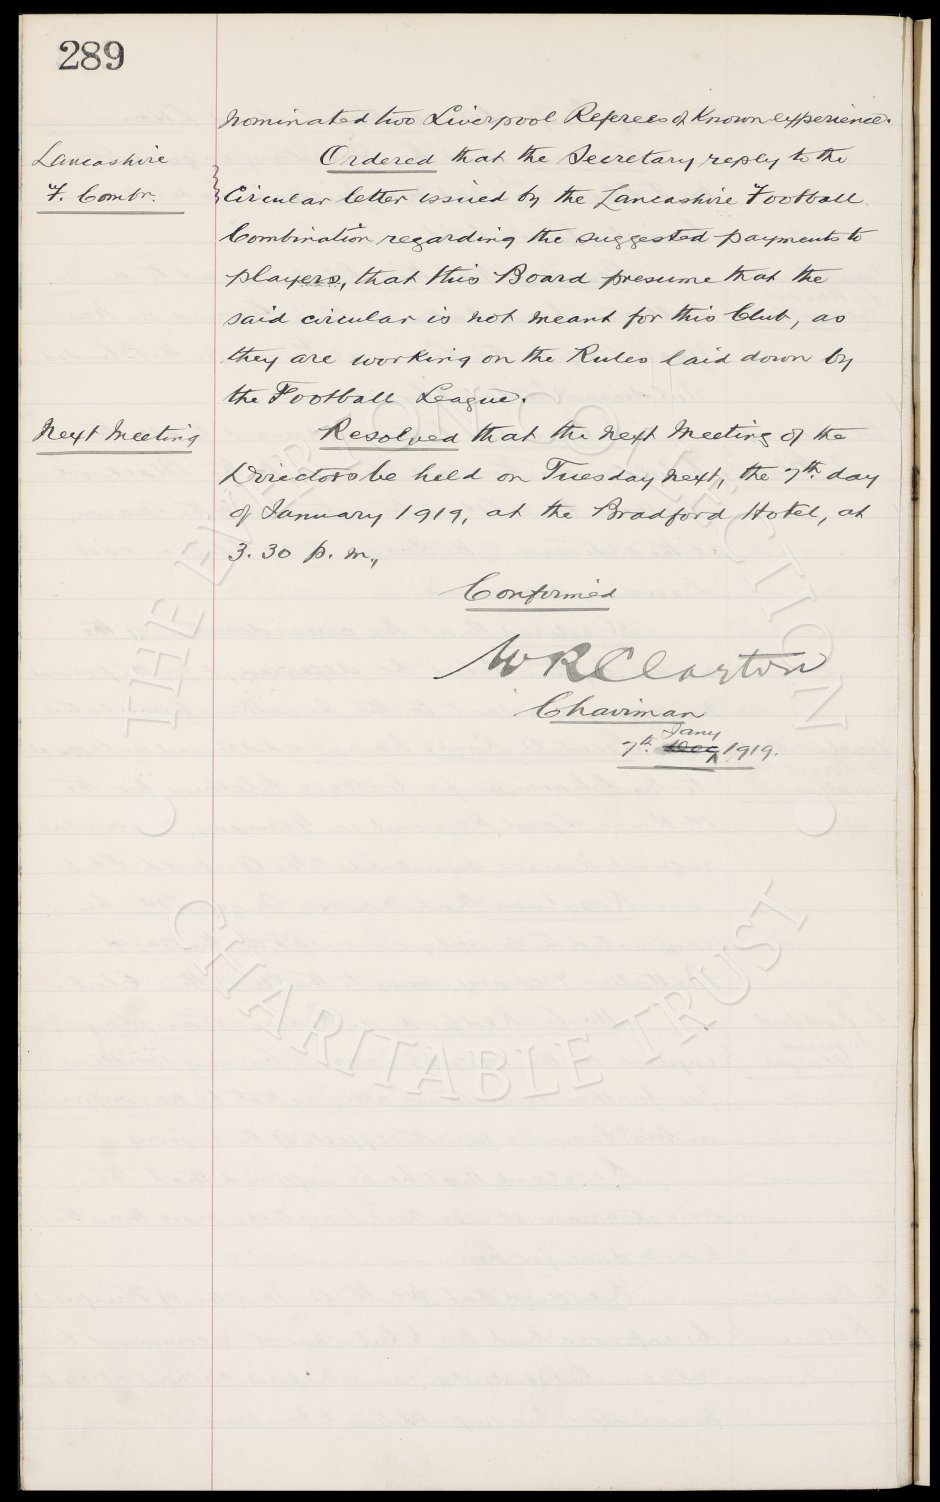 289
nominated two Liverpool Referees of Known experience.
Lancashire
F. Combn.
Ordered that the Secretary reply to the
Circular letter issued by the Lancashire Football
Combination regarding the suggested payments to
players, that this Board presume that the
said circular is not meant for this Club, as
they are working on the Rules laid down by
the Football League.
Next Meeting
Resolved that the next Meeting of the
Directors be held on Tuesday next, the 7th day
of January 1919, at the Bradford Hotel, at
3.30 p.m.,
Confirmed
W R Clayton
Chairman
Jany
7th Dec 1919.
THE EVERTON COLLECTION
CHARITABLE TRUST